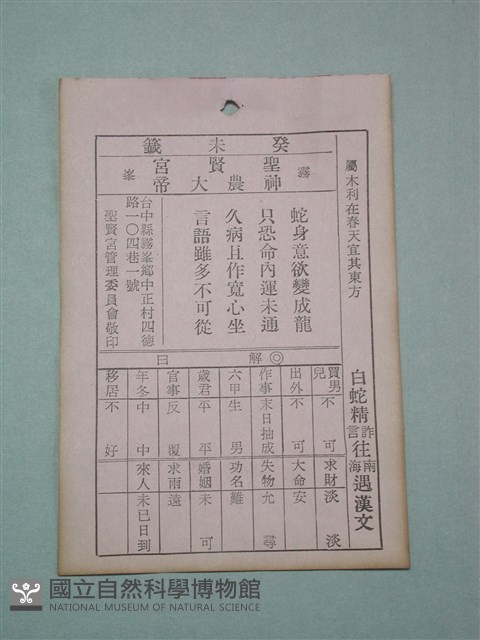 屬木利在春天宜其東方
白蛇精詐言往南海遇漢文
癸未籤
霧峯
聖賢宮
神農大帝
蛇身意欲變成龍
只恐命內運未通
久病且作寬心坐
言語雖多不可從
台中縣霧峯鄉中正村四德
路一〇四巷一號
聖賢宮管理委員會敬印
◎解曰
買男兒 不可
出外 不可
作事 末日抽成
六甲 生男
歲君 平平
官事 反覆
年冬 中中
移居 不好
求財 淡淡
大命 安
失物 允尋
功名 難
婚姻 未可
求雨 遠
來人 未已日到
國立自然科學博物館
NATIONAL MUSEUM OF NATURAL SCIENCE